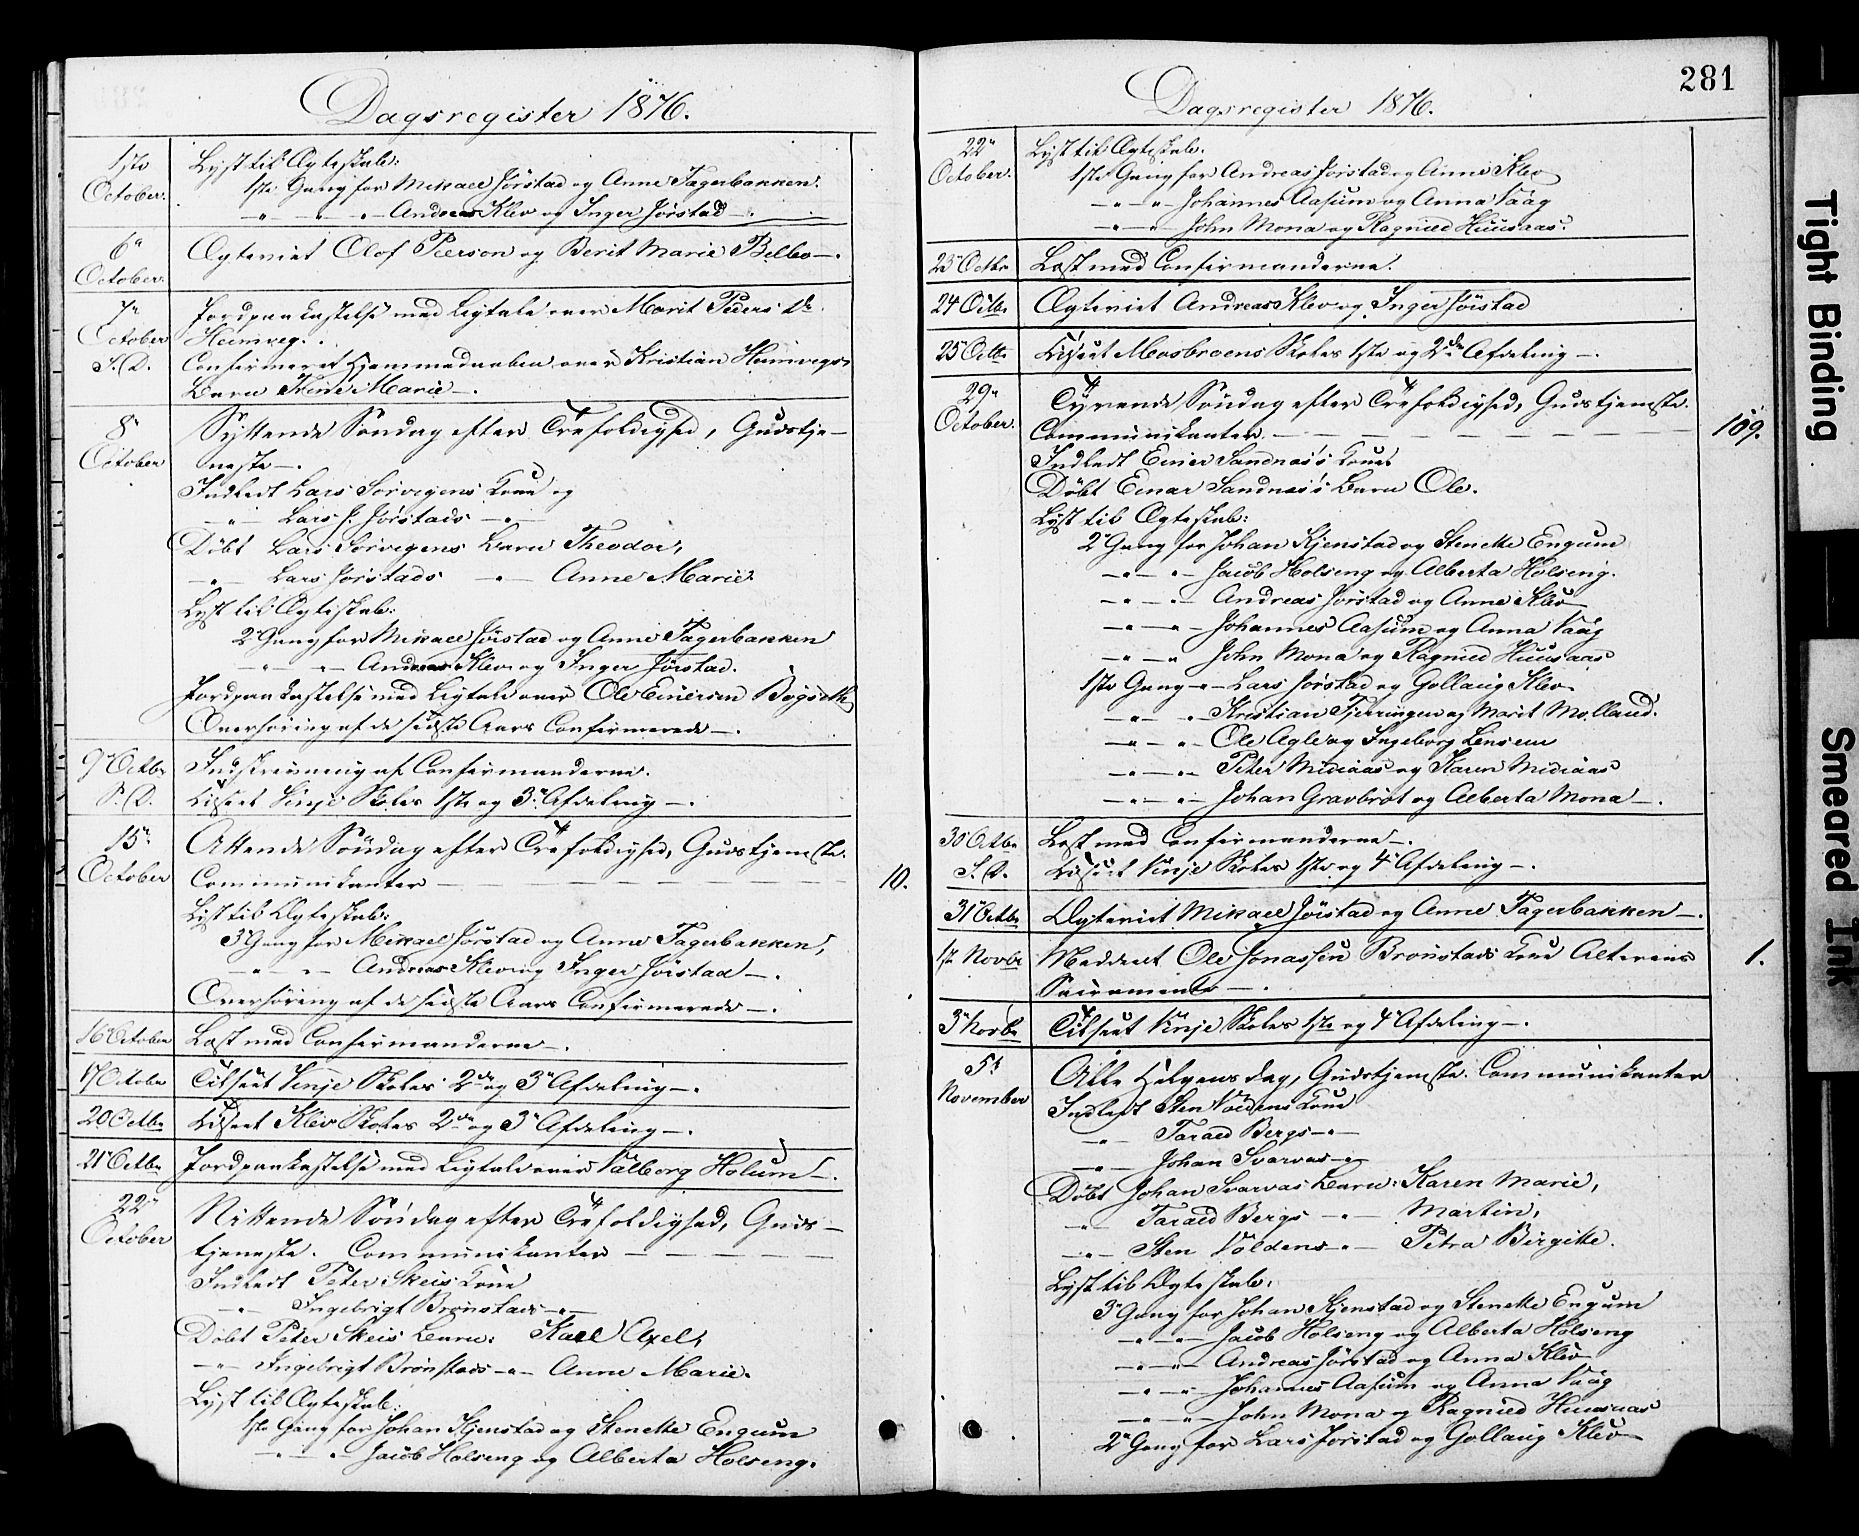 Dagsregister 1876.
1ste October. Lyst til Ægteskab:
1ste Gang for Mikael Jørstad og Anne Fagerbakken.
-"- -"- Andreas Klev og Inger Jørstad -.
6te October. Ægteviet Olof Pierson og Berit Marie Belbo -.
7de October Jordpaakastelse med Ligtale over Marit Peders Dr.
Heimveg.
S. D. Confirmeret Hjemmedaaben over Kristian Heimvegs
Barn Trine Marie -.
8de October Syttende Søndag efter Trefoldighed, Gudstje-
neste -.
Indledt Lars Sorvegens Kone og
-"- Lars J. Jørstads -"-
Døbt Lars Sorvegens Barn Theodor,
-"- Lars Jørstads -"- Anne Marie.
Lyst til Ægteskab:
2den Gang for Mikael Jørstad og Anne Fagerbakken
-"- -"- Andreas Klev og Inger Jørstad.
Jordpaakastelse med Ligtale over Ole Einersen Bøgseth
Overhøring af de sidste Aars Confirmerede -.
9de Octbr Indskrivning af Confirmanderne.
S. D. Tilseet Vinje Skoles 1ste og 3die Afdeling -.
15de October Attende Søndag efter Trefoldighed, Gudstjeneste.
Communikanter - - - - - 10.
Lyst til Ægteskab:
3die Gang for Mikael Jørstad og Anne Fagerbakken,
-"- -"- Andreas Klev og Inger Jørstad -.
Overhøring af de sidste Aars Confirmerede -.
16 October Læst med Confirmanderne -.
17 October Tilseet Vinje Skoles 2den og 3die Afdeling -.
20 Octbr Tilseet Klev Skoles 2den og 3die Afdeling -.
21 Octbr Jordpaakastelse med Ligtale over Valborg Holum -.
22de October Nittende Søndag efter Trefoldighed, Guds-
tjeneste. Communikanter - - - -
Indledt Peter Skeis Kone
-"- Ingebrigt Brønstads -"-
Døbt Peter Skeis Barn: Karl Axel,
-"- Ingebrigt Brønstads -"- Anne Marie.
Lyst til Ægteskab:
1ste Gang for Johan Kjenstad og Stenette Engum
-"- -"- Jacob Holseng og Alberta Holseng.
281
Dagsregister 1876.
22de October. Lyst til Ægteskab.
1ste Gang for Andreas Jørstad og Anne Klev
-"- -"- Johannes Aasum og Anna Vaag
-"- -"- John Mona og Ragnild Huusaas.
23 Octbr Læst med Confirmanderne.
24 Octbr Ægteviet Andreas Klev og Inger Jørstad
25 Octbr Tilseet Mosbroens Skoles 1ste og 2den Afdeling -.
29de October. Tyvende Søndag efter Trefoldighed, Gudstjeneste.
Communikanter - - - - - 109.
Indledt Einer Sandnæs's Kone
Døbt Einar Sandnæs's Barn Ole.
Lyst til Ægteskab:
2den Gang for Johan Kjenstad og Stenette Engum
-"- -"- Jacob Holseng og Alberta Holseng.
-"- -"- Andreas Jørstad og Anne Klev
-"- -"- Johannes Aasum og Anna Vaag
-"- -"- John Mona og Ragnild Huusaas
1ste Gang -"- Lars Jørstad og Gollaug Klev
-"- -"- Kristian Fjerringen og Marit Molland.
-"- -"- Ole Agle og Ingeborg Linsem
-"- -"- Peter Midiaas og Karen Midiaas
-"- -"- Johan Gravbrøt og Alberta Mona -.
30 Octbr Læst med Confirmanderne -.
S. D. Tilseet Vinje Skoles 1ste og 4de Afdeling -.
31 Octbr Ægteviet Mikael Jørstad og Anne Fagerbakken -.
1ste Novbr Meddeelt Ole Jonassen Brønstads Kone Alterens
Sacramente -. 1.
3die Novbr Tilseet Vinje Skoles 1ste og 4de Afdeling -.
5te November Alle Helgens dag, Gudstjeneste. Communikanter
Indledt Sten Voldens Kone
-"- Tarald Bergs -"-
-"- Johan Svarvas -"-
Døbt Johan Svarvas Barn: Karen Marie,
-"- Tarald Bergs -"- Martin,
-"- Sten Voldens -"- Petra Birgitte.
Lyst til Ægteskab:
3die Gang for Johan Kjenstad og Stenette Engum
-"- -"- Jacob Holseng og Alberta Holseng
-"- -"- Andreas Jørstad og Anna Klev
-"- -"- Johannes Aasum og Anna Vaag
-"- -"- John Mona og Ragnild Huusaas
2den Gang for Lars Jørstad og Gollaug Klev
Tight Binding
Smeared Ink